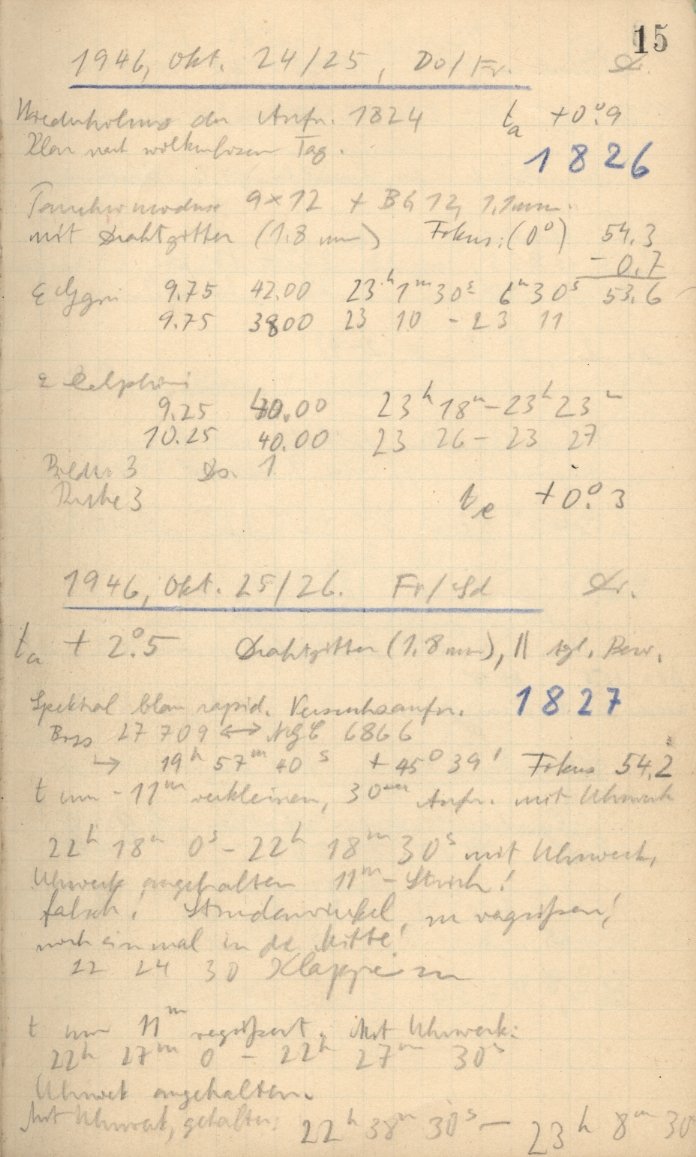 15
1946, Okt. 24/25, Do/Fr. Dr.
Wiederholung der Aufn. 1824 ta +0°.9
Klar nach wolkenlosem Tag. 1826
9×12 + BG 12, 1,1mm.
mit Drahtgitter (1.8 mm) Fokus: (0°) 54.3
- 0.7
ε Cygni 9.75 42.00 23h 1m 30s 6m 30s 53.6
9.75 38.00 23 10 - 23 11
ε Delphini
9.25 40.00 23h 18m - 23h 23m
10.25 40.00 23 26 - 23 27
3 1
Ruhe 3 te +0°.3
1946, Okt. 25/26. Fr/Sd Dr.
ta + 2°.5 Drahtgitter (1.8 mm), || tgl. Bew.
Spektral blau rapid. Versuchsaufn. 1827
27709 ↔ NGC 6866
→ 19h 57m 40s +45° 39' Fokus 54.2
t um -11m verkleinern, Aufn. mit Uhrwerk
22h 18m 0s - 22h 18m 30s mit Uhrwerk,
Uhrwerk angehalten 11m-Strich!
falsch! Stundenwinkel zu vergrößern!
noch einmal in die Mitte!
22 24 30 Klappe zu
t um 11m vergrößert. Mit Uhrwerk:
22h 27m 0 - 22h 27m 30s
Uhrwerk angehalten.
Mit Uhrwerk, gehalten: 22h 38m 30s - 23h 8m 30